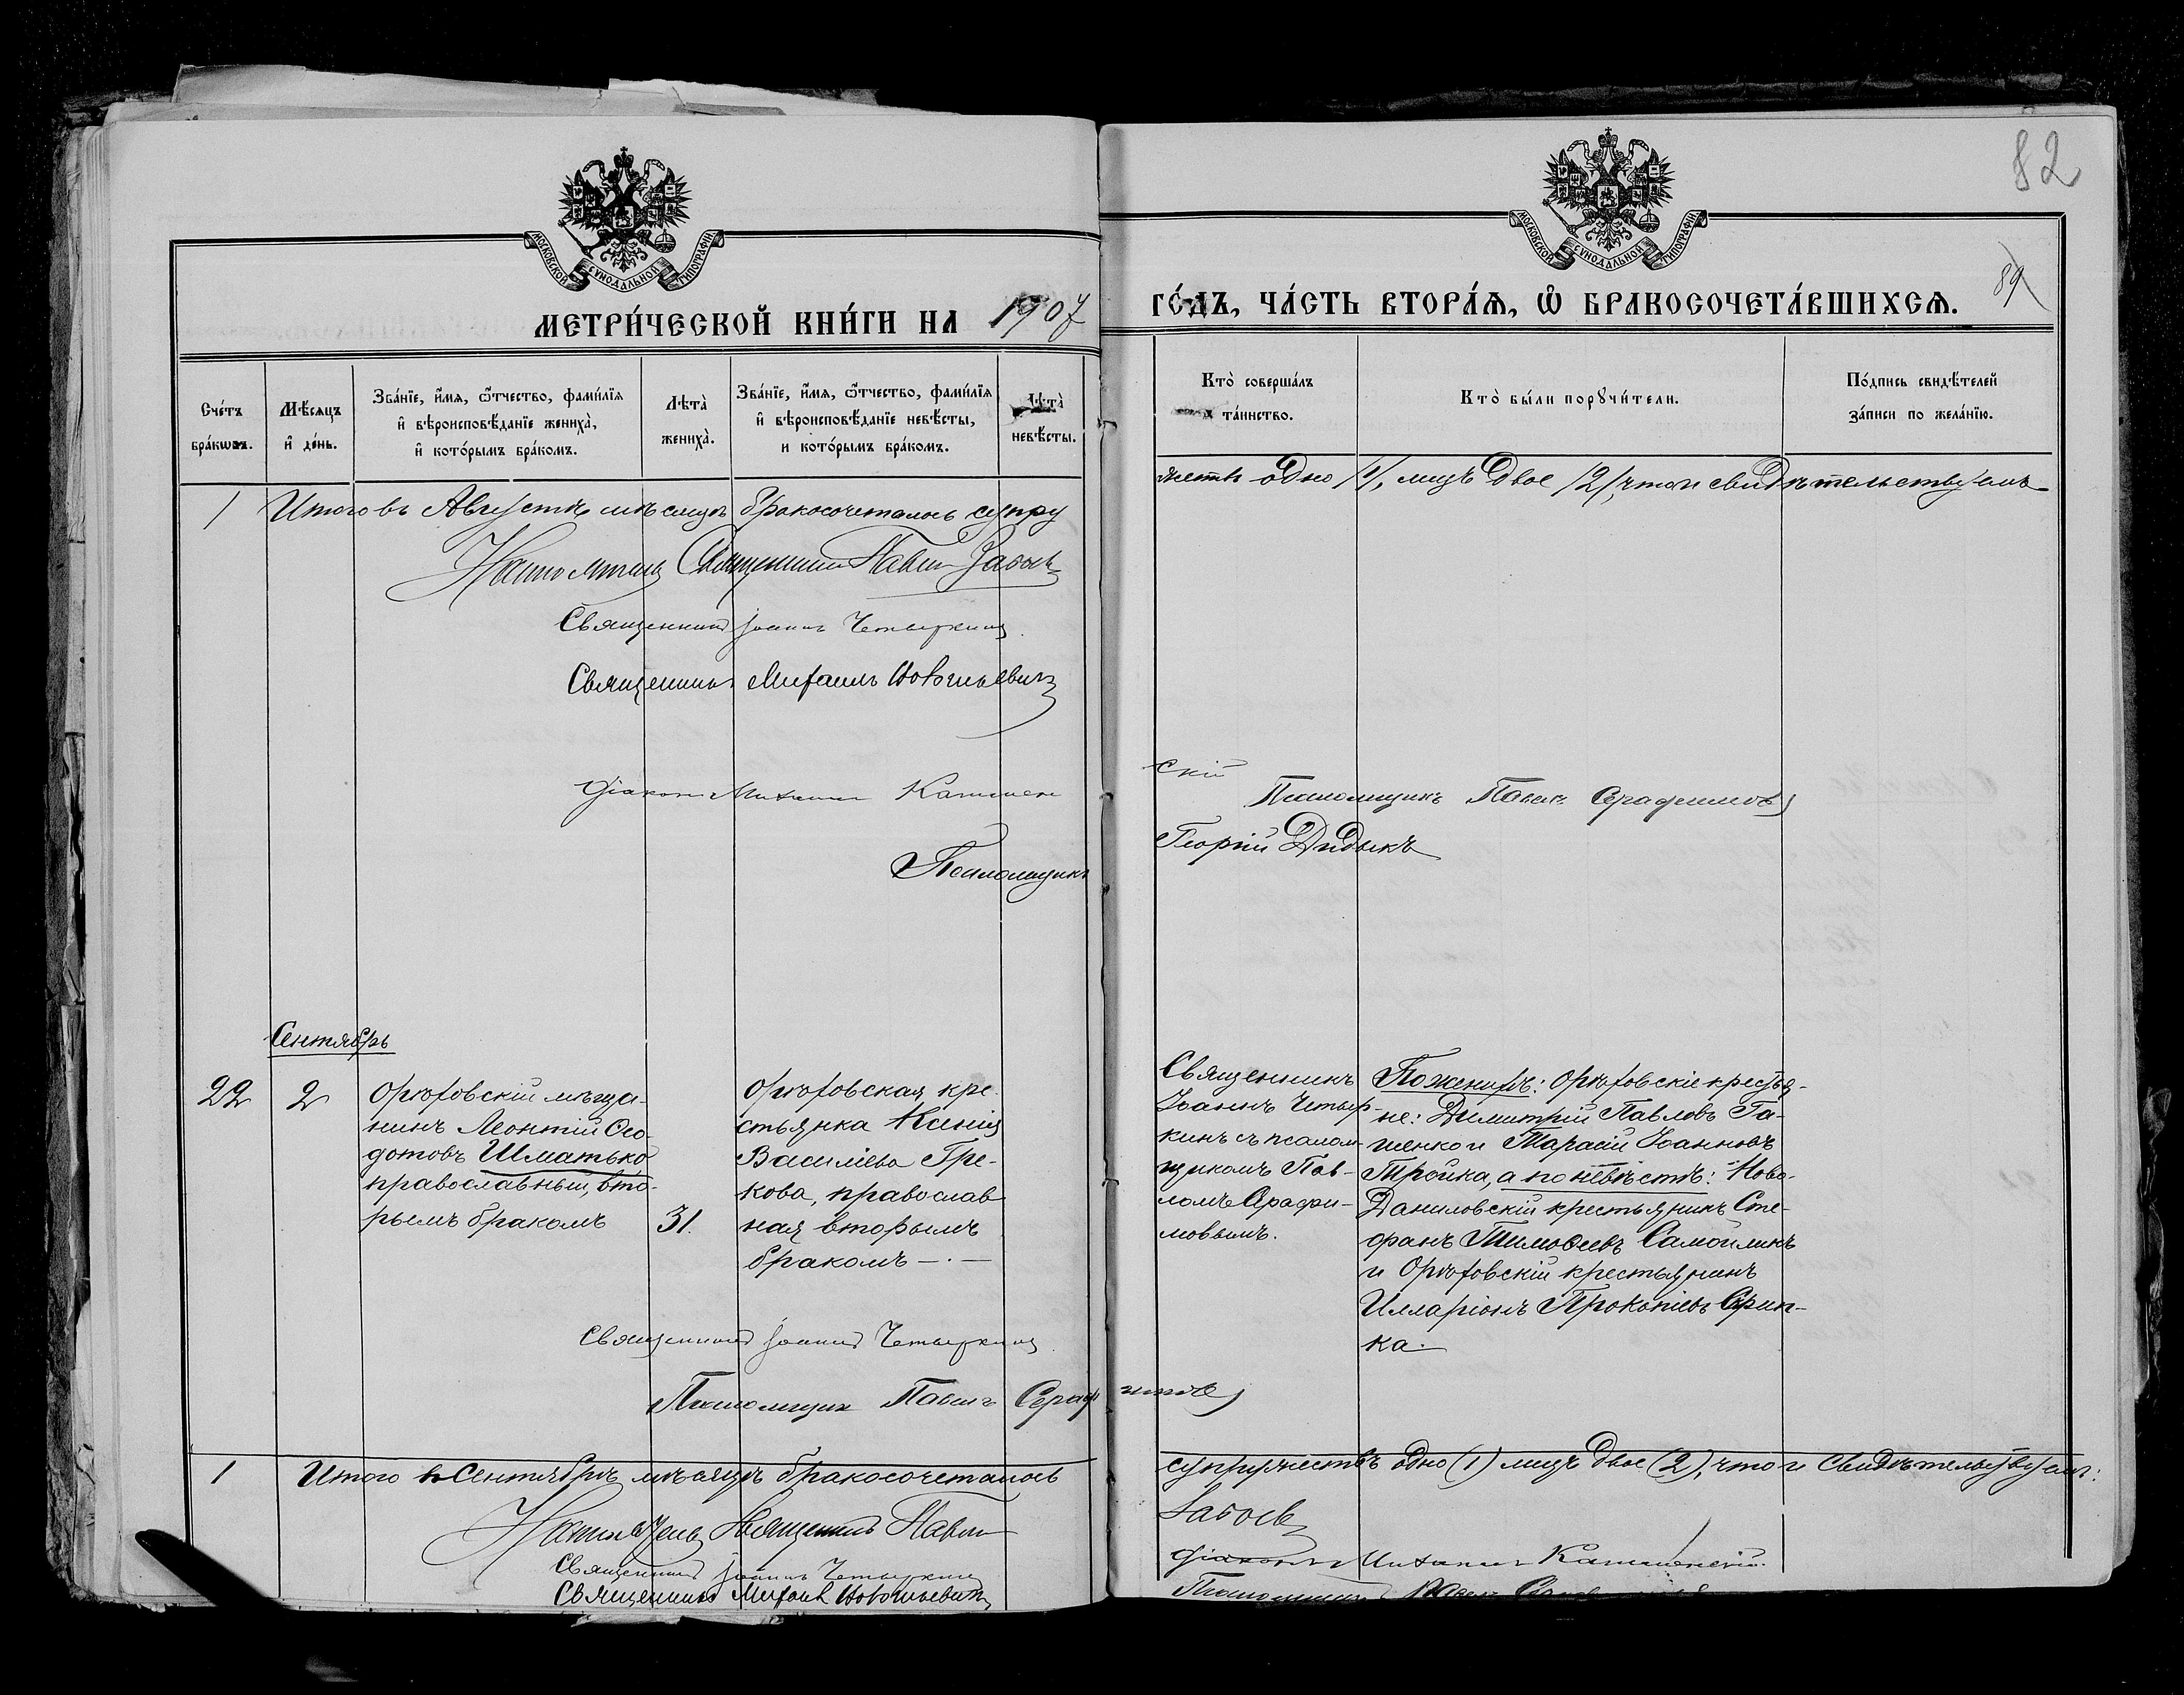 82
89
МОСКОВСКОЙ СУНОДАЛЬНОЙ ТИПОГРАФІИ
МОСКОВСКОЙ СУНОДАЛЬНОЙ ТИПОГРАФІИ
МЕТРИ́ЧЕСКОЙ КНИ́ГИ НА 1907
ГО́ДЪ, ЧА́СТЬ ВТОРА́Ѧ, Ѡ҆ БРАКОСОЧЕТА́ВШИХСѦ.
Сче́тъ бра́кѡвъ.
Мѣ́сѧцъ и҆ де́нь.
Зва́нїе, и҆́мѧ, ѻ҆́тчество, фами́лїѧ и҆ вѣроисповѣ́данїе жениха̀, и҆ кото́рымъ бра́комъ.
Лѣта̀ жениха̀.
Зва́нїе, и҆́мѧ, ѻ҆́тчество, фами́лїѧ и҆ вѣроисповѣ́данїе невѣ́сты, и кото́рымъ бра́комъ.
Лѣта̀ невѣ́сты.
Кто̀ соверша́лъ та́инство.
Кто̀ бы́ли порꙋчи́тели.
По́дпись свидѣ́телей за́писи по жела́нїю.
1 Итого въ Августѣ мѣсяцѣ бракосочеталось супру
жествъ одно /1/, лицъ двое /2/, что и свидѣтельствуемъ
Настоятель Священникъ Павелъ Забоевъ
Священникъ Іоаннъ Четыркинъ
Священникъ Михаилъ
Діаконъ Михаилъ Каминен
скій
Псаломщикъ Павелъ Серафимовъ
Псаломщикъ
Георгій Дидыкъ
Сентябрь
22
2
Орѣховскій мѣща-
нинъ Леонтій Ѳео-
дотовъ Шматько
православный, вто-
рымъ бракомъ
31.
Орѣховская кре-
стьянка Ксенія
Василіева Гре-
кова, православ
ная вторымъ
бракомъ —·—
Священникъ
Іоаннъ Четыр-
кинъ съ псалом-
щикомъ Пав-
ломъ Серафи-
мовымъ.
По женихѣ: Орѣховскіе крестья-
не: Димитрій Павловъ Га-
шенко и Тарасій Іоанновъ
Тройка, а по невѣстѣ: Ново-
Даниловскій крестьянинъ Сте-
фанъ Тимоѳеевъ Самойликъ
и Орѣховскій крестьянинъ
Илларіонъ Прокопіевъ Скрип-
ка.
Священникъ Іоаннъ Четыркинъ
Псаломщикъ Павелъ Сераф
имовъ
1 Итого въ Сентябрѣ мѣсяцѣ бракосочеталось
супружествъ одно (1) лицъ двое (2), что и свидѣтельствуемъ:
Настоятель Священникъ Павелъ
Забоевъ
Священникъ Іоаннъ Четыркинъ
Діаконъ Михаилъ Каминенскій
Священникъ Михаилъ
Псаломщикъ Павелъ